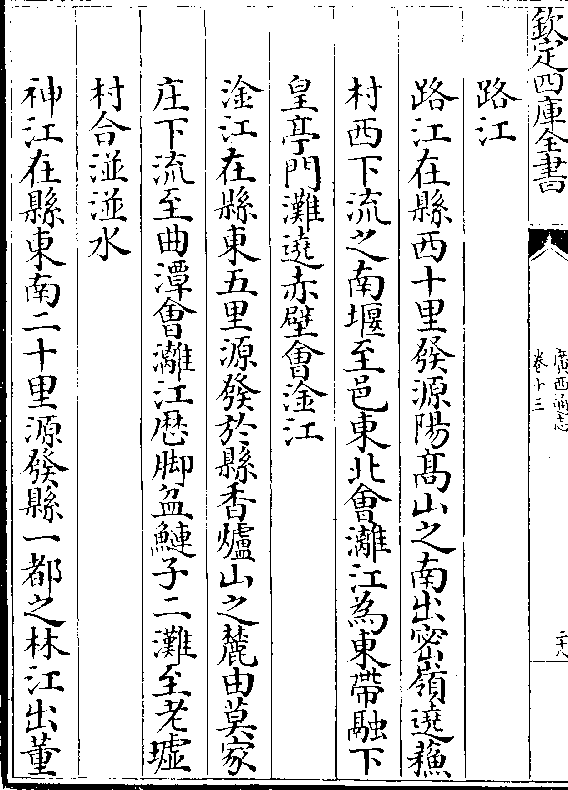 欽定四庫全書
廣西通志
卷十三
二十八
路江
路江在縣西十里發源陽髙山之南出密嶺遶
村西下流之南堰至邑東北會灕江為東帶融下
皇亭門灘遶赤壁會淦江
淦江在縣東五里源發於縣香爐山之麓由莫家
庄下流至曲潭會灕江厯脚盆鰱子二灘至老墟
村合湴湴水
神江在縣東南二十里源發縣一都之林江出董